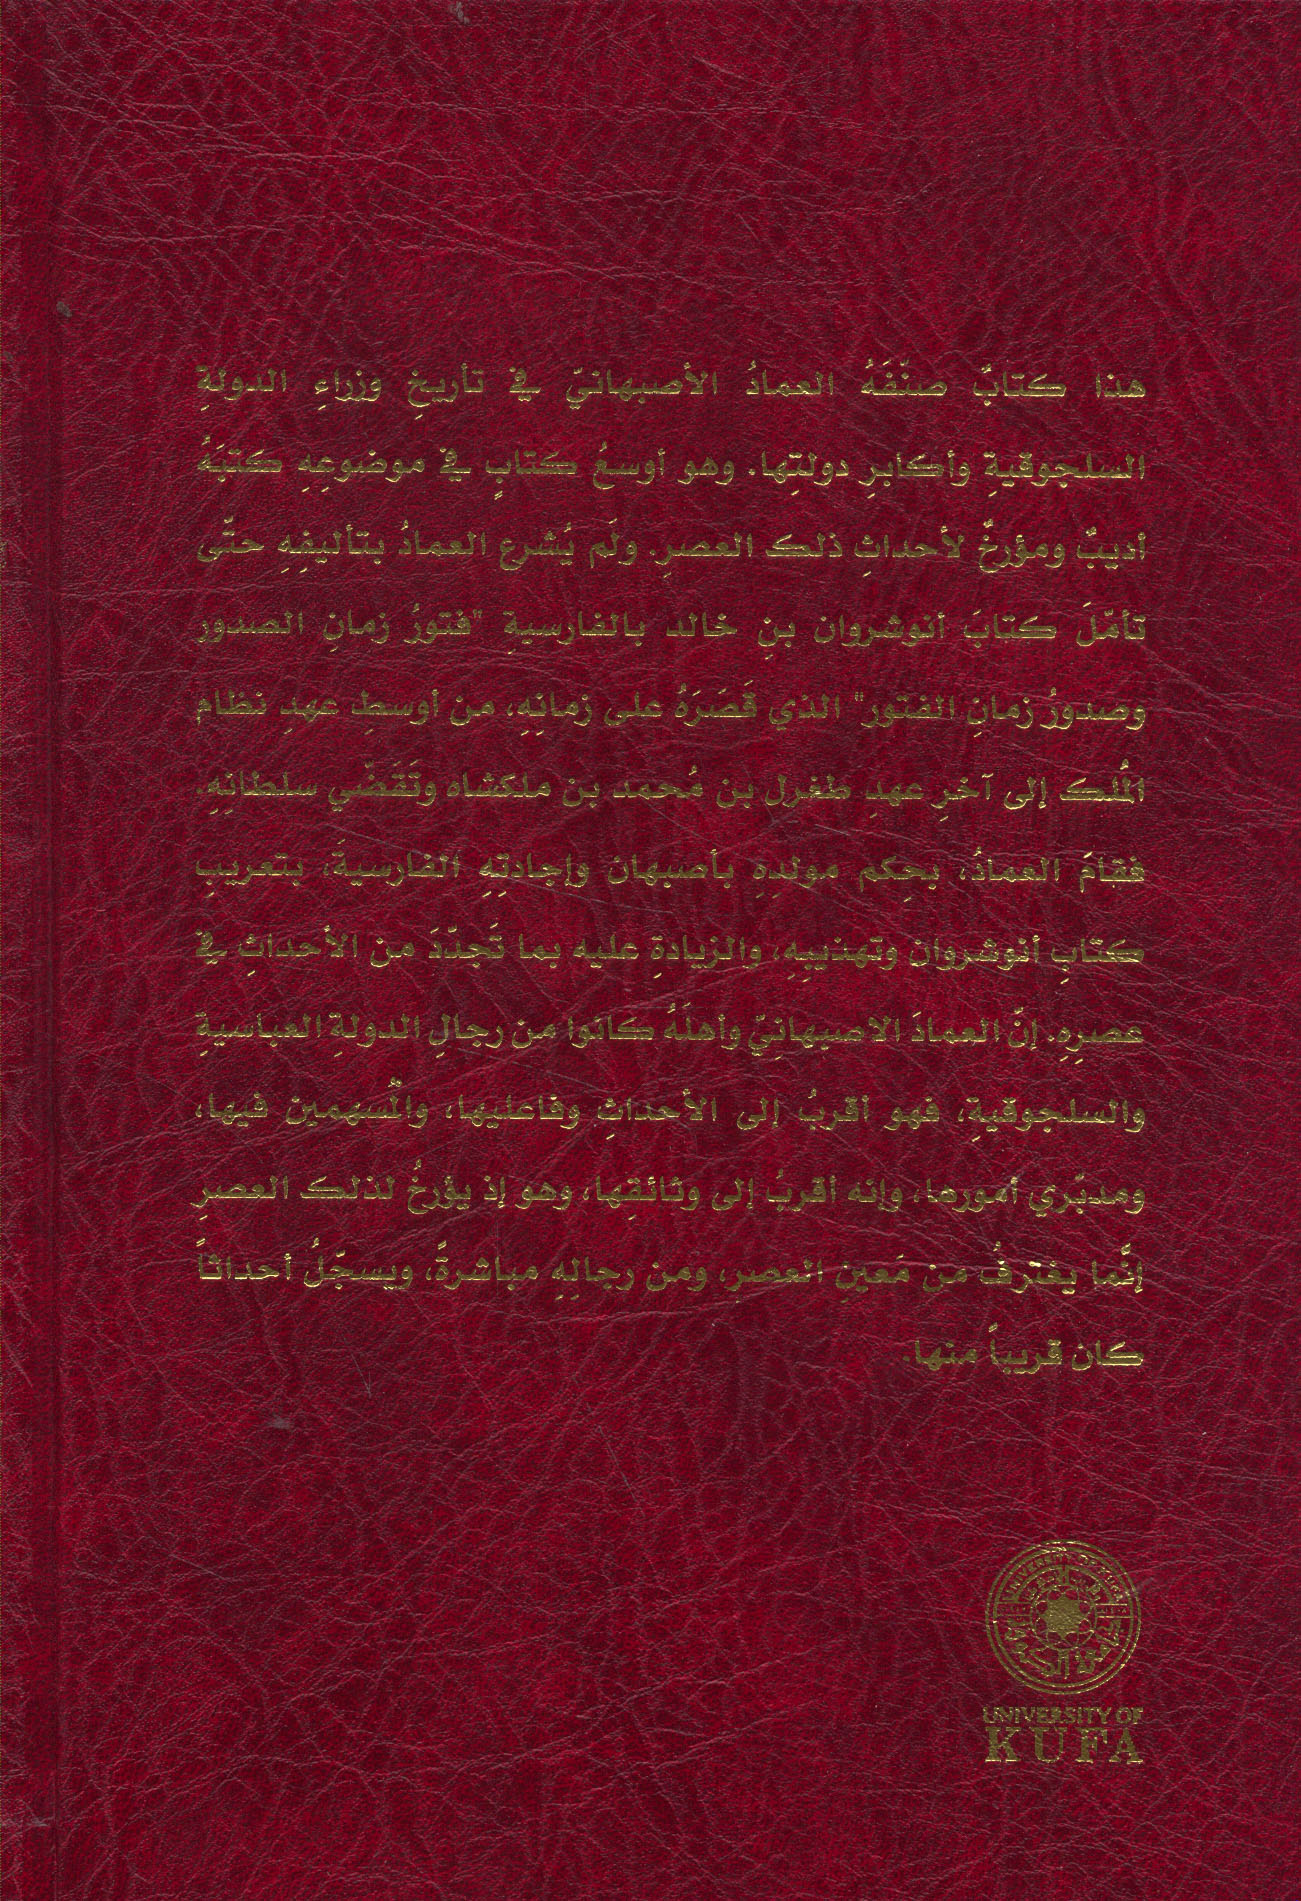 هذا كتابٌ صنّفَهُ العمادُ الأصبهانيّ في تأريخِ وزراءِ الدولةِ
السلجوقيةِ وأكابرِ دولتِها. وهو أوسعُ كتابٍ في موضوعِهِ كتبَهُ
أديبٌ ومؤرخٌ لأحداثِ ذلك العصرِ. ولَم يُشرع العمادُ بتأليفِهِ حتّى
تأمّلَ كتابَ أنوشروان بنِ خالد بالفارسيةِ "فتورُ زمانِ الصدور
وصدورُ زمانِ الفتور" الذي قَصَرَهُ على زمانِهِ، من أوسطِ عهدِ نظام
المُلك إلى آخرِ عهدِ طغرل بن مُحمد بن ملكشاه وتَقَضّي سلطانِهِ.
فقامَ العمادُ، بحِكم مولدهِ بأصبهان وإجادتِهِ الفارسيةَ، بتعريبِ
كتابِ أنوشروان وتهذيبِهِ، والزيادةِ عليه بما تَجدّدَ من الأحداثِ في
عصرِهِ. إنّ العمادَ الاصبهانِيّ وأهلَهُ كانوا من رجالِ الدولةِ العباسيةِ
والسلجوقيةِ، فهو أقربُ إلى الأحداثِ وفاعليها، والمُسهمين فيها،
ومدبّري أمورها، وإنه أقربُ إلى وثائقِها، وهو إذ يؤرخُ لذلك العصرِ
إنَّما يغترفُ من مَعينِ العصرِ، ومن رجالِهِ مباشرةً، ويسجّلُ أحداثاً
كان قريباً منها.
UNIVERSITY OF KUFA
جامعة الكوفة
UNIVERSITY OF
KUFA